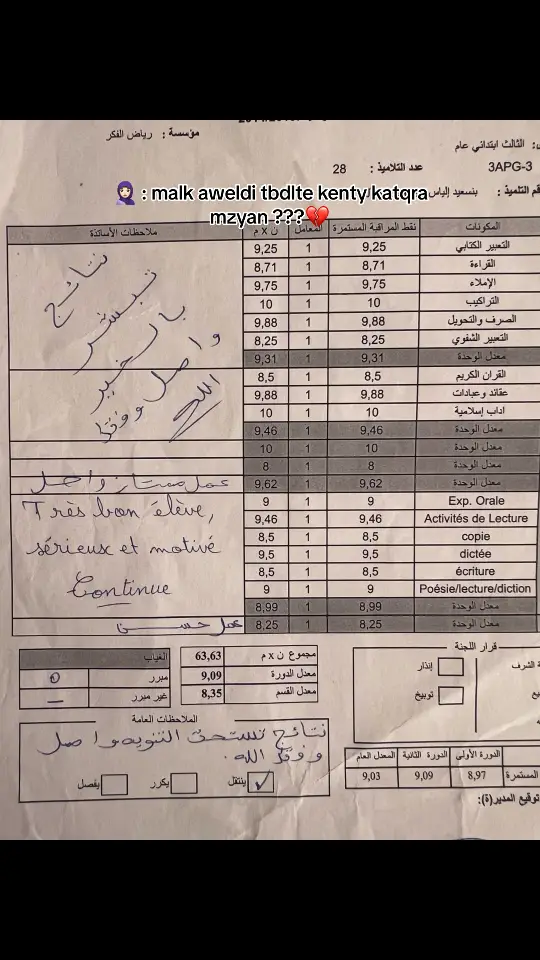 مؤسسة : رياض الفكر
الثالث ابتدائي عام
3APG-3
عدد التلاميذ : 28
🧕🏻 : malk aweldi tbdlte kenty katqra
mzyan ???💔
قم التلميذ : بنسعيد إلياس
المكونات نقط المراقبة المستمرة المعامل ن x م ملاحظات الأساتذة
التعبير الكتابي 9,25 1 9,25
القراءة 8,71 1 8,71
الإملاء 9,75 1 9,75
التراكيب 10 1 10
الصرف والتحويل 9,88 1 9,88
التعبير الشفوي 8,25 1 8,25
معدل الوحدة 9,31 1 9,31
نتائج
تبشر
بالخير
واصل وفقك
الله
القران الكريم 8,5 1 8,5
عقائد وعبادات 9,88 1 9,88
اداب إسلامية 10 1 10
معدل الوحدة 9,46 1 9,46
معدل الوحدة 10 1 10
معدل الوحدة 8 1 8
معدل الوحدة 9,62 1 9,62 عمل ممتاز واصل
Exp. Orale 9 1 9
Activités de Lecture 9,46 1 9,46
copie 8,5 1 8,5
dictée 9,5 1 9,5
écriture 8,5 1 8,5
Poésie/lecture/diction 9 1 9
معدل الوحدة 8,99 1 8,99
Très bon élève,
sérieux et motivé
Continue
معدل الوحدة 8,25 1 8,25 عمل حسن
قرار اللجنة
ة الشرف
إنذار
توبيخ
مجموع ن x م 63,63
معدل الدورة 9,09
معدل القسم 8,35
الغياب
مبرر 0
غير مبرر —
الملاحظات العامة
نتائج تستحق التنويه واصل
وفقك الله.
ينتقل ✓ يكرر يفصل
الدورة الأولى الدورة الثانية المعدل العام
المستمرة 8,97 9,09 9,03
توقيع المدير(ة):